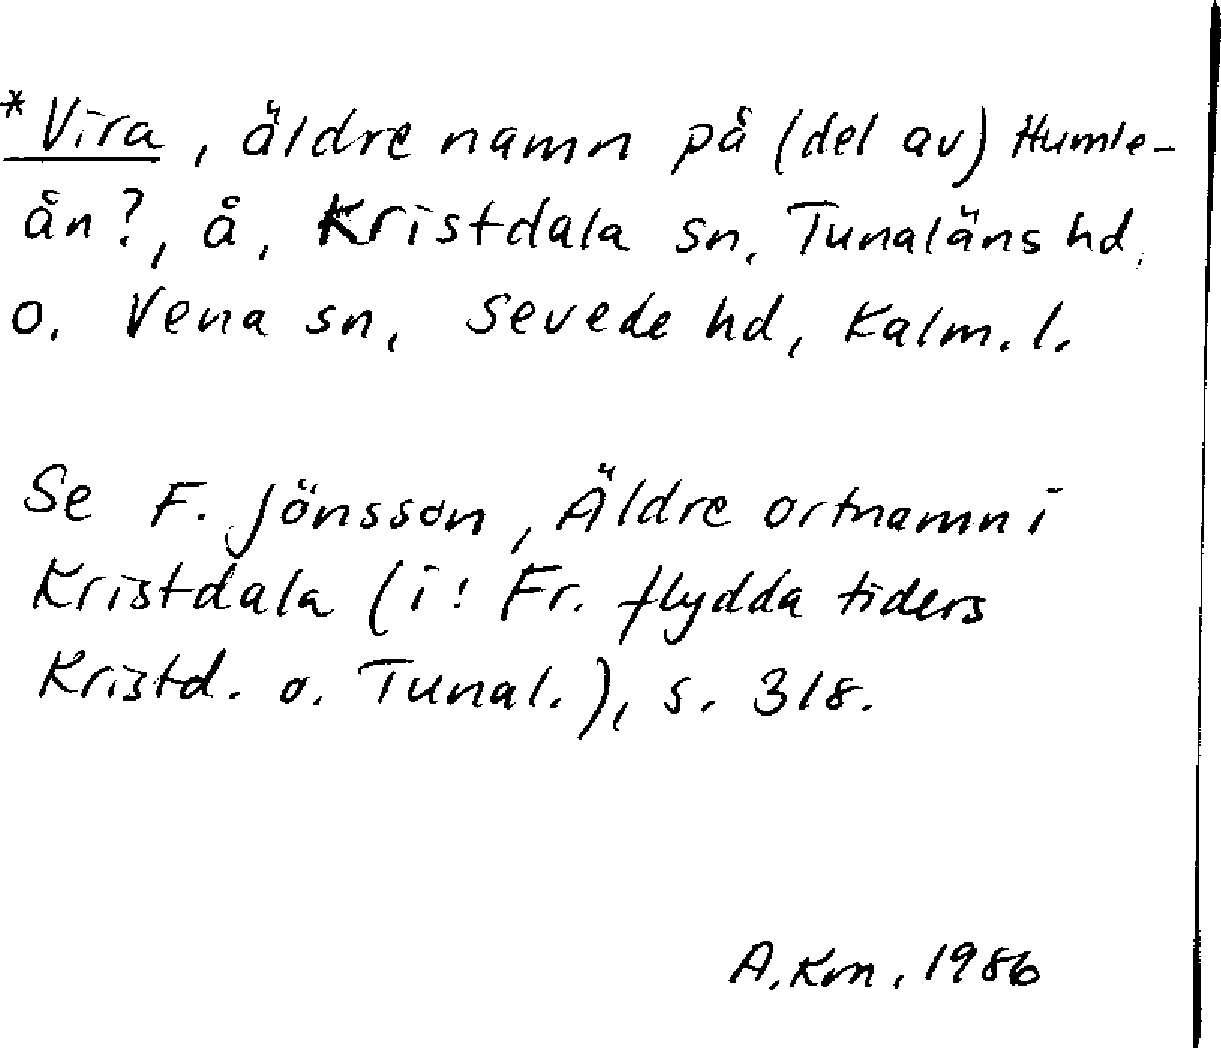 *Vira, äldre namn på (del av) Humle-
ån?, å, Kristdala sn, Tunaläns hd,
o. Vena sn, Sevede hd, Kalm. l.
Se F. Jönsson, Äldre ortnamn i
Kristdala (i: Fr. flydda tiders
Kristd. o. Tunal.), s. 318.
A. Krn, 1986